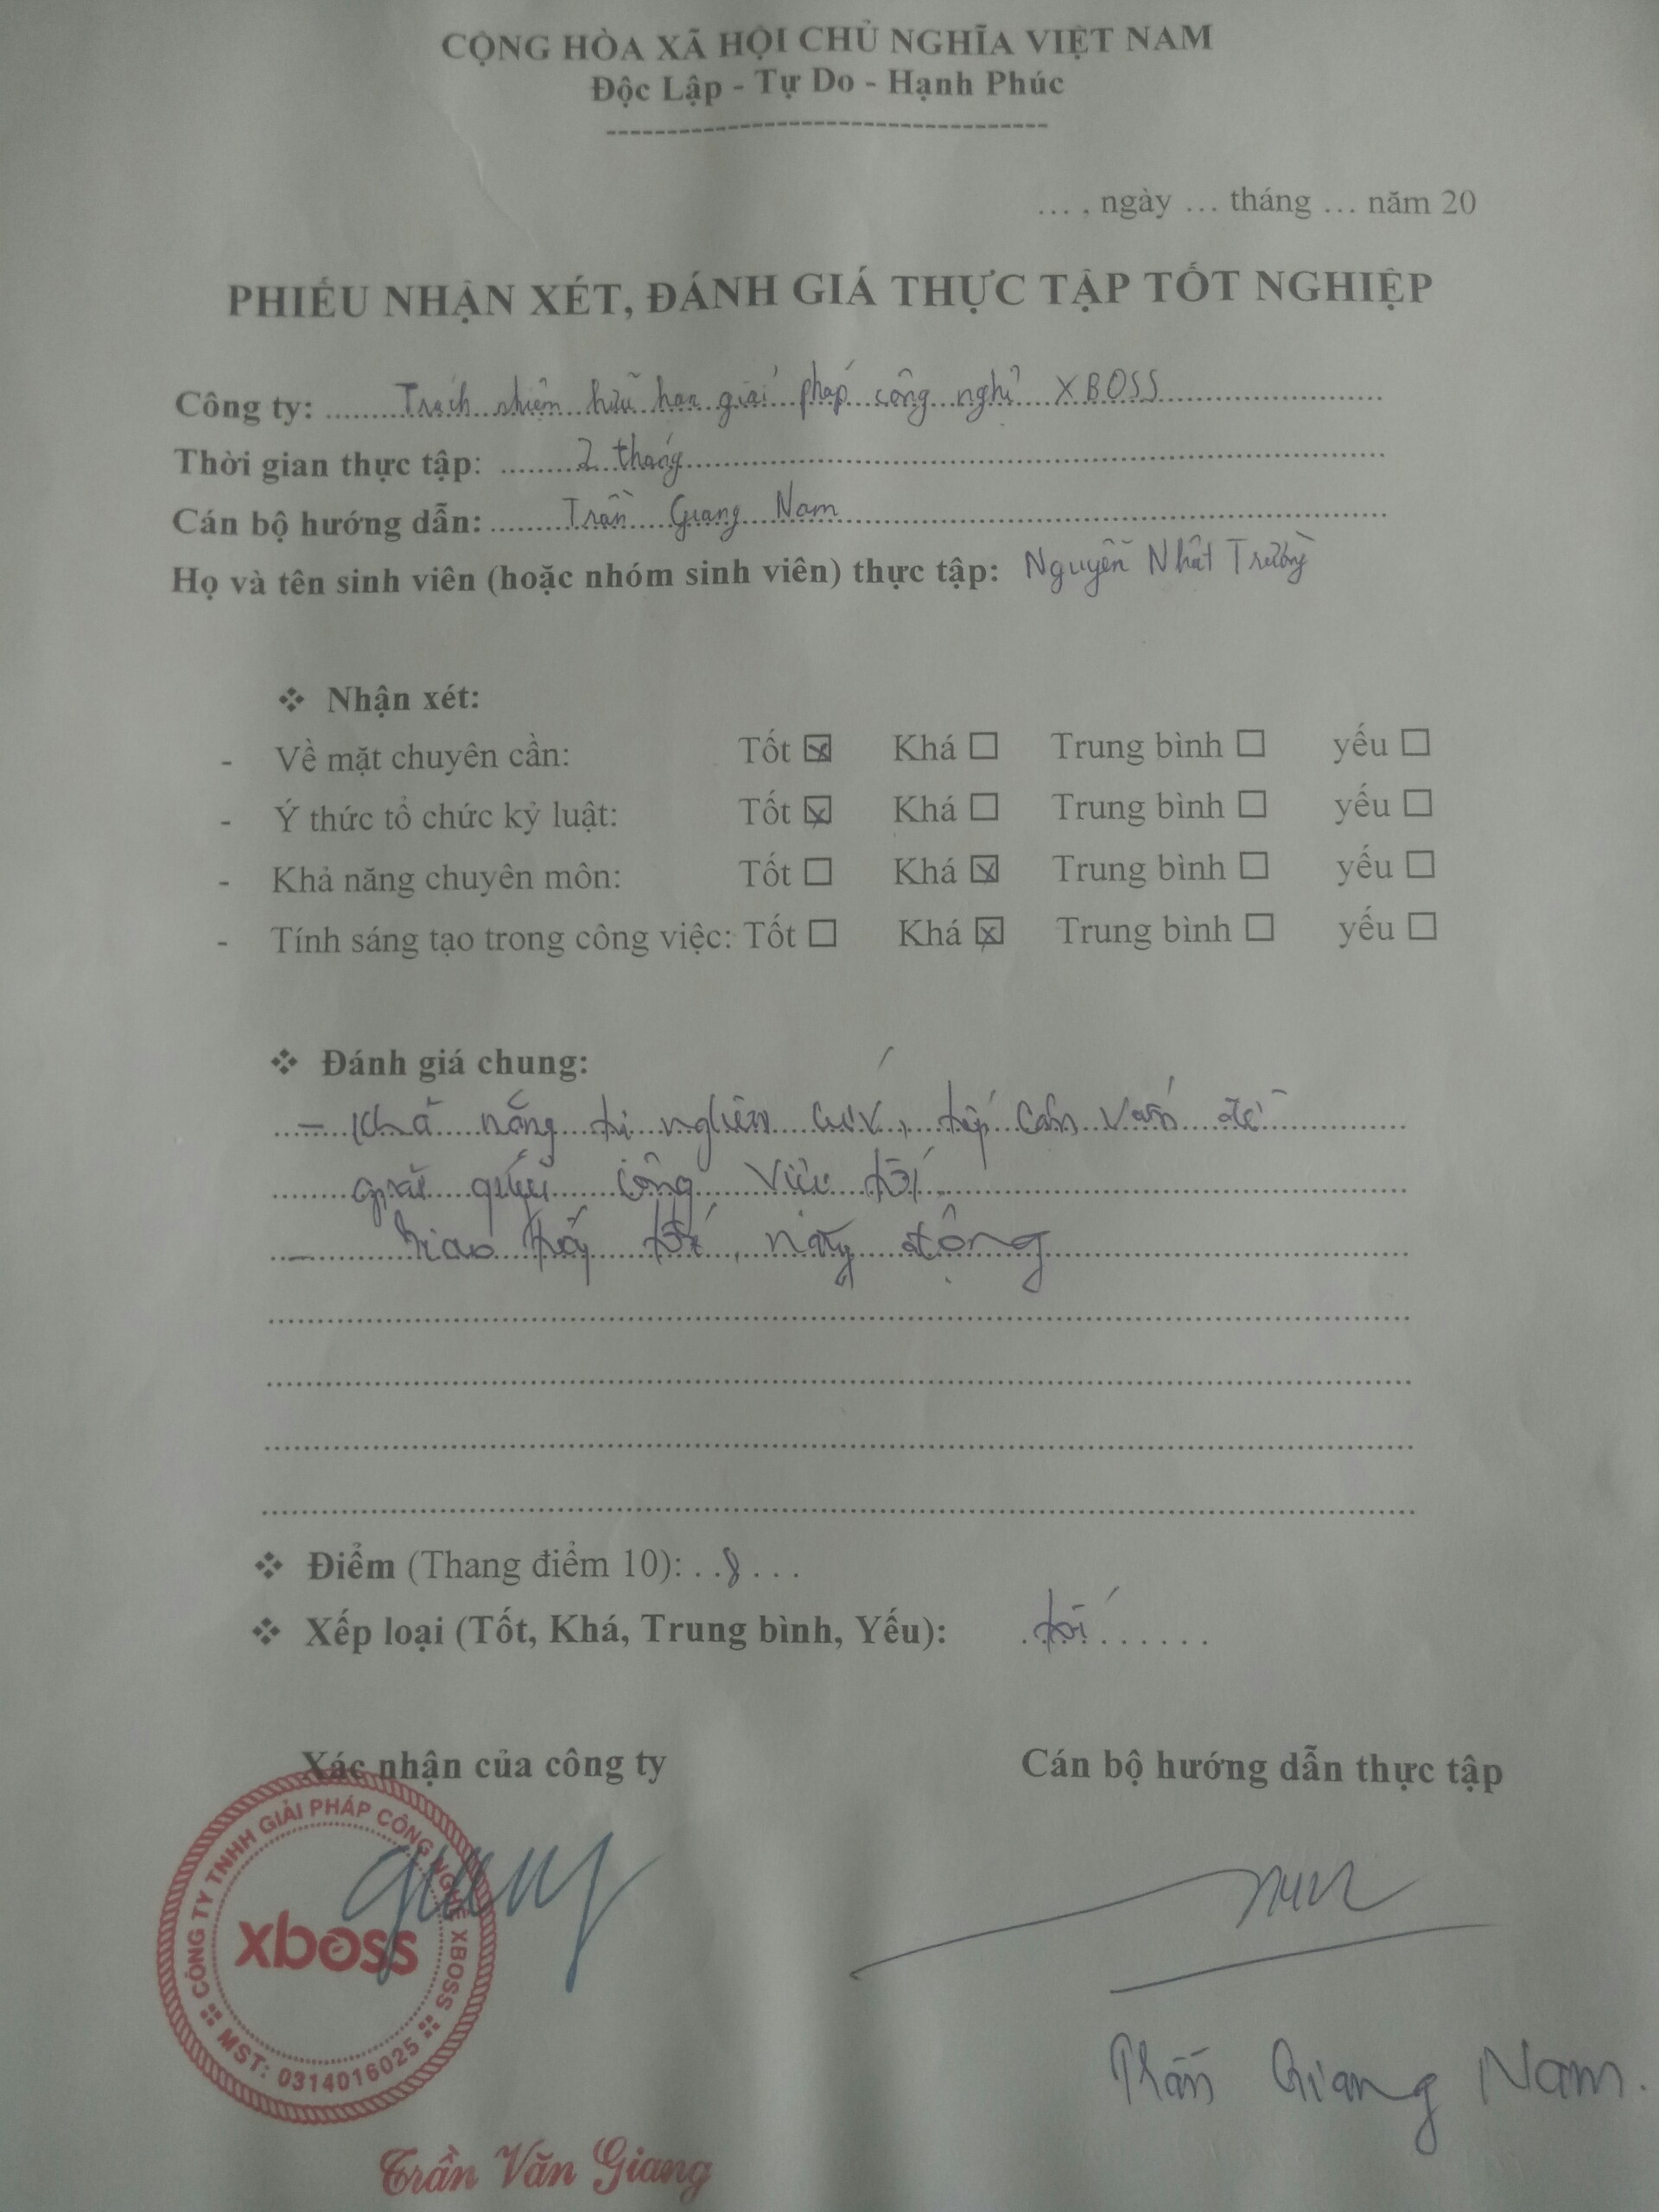 CỘNG HÒA XÃ HỘI CHỦ NGHĨA VIỆT NAM
Độc Lập - Tự Do - Hạnh Phúc
------------------------------------
... , ngày ... tháng ... năm 20
PHIẾU NHẬN XÉT, ĐÁNH GIÁ THỰC TẬP TỐT NGHIỆP
Công ty: Trách nhiệm hữu hạn giải pháp công nghệ XBOSS
Thời gian thực tập: 2 tháng
Cán bộ hướng dẫn: Trần Giang Nam
Họ và tên sinh viên (hoặc nhóm sinh viên) thực tập: Nguyễn Nhất Trường
❖ Nhận xét:
- Về mặt chuyên cần: Tốt ☒ Khá ☐ Trung bình ☐ yếu ☐
- Ý thức tổ chức kỷ luật: Tốt ☒ Khá ☐ Trung bình ☐ yếu ☐
- Khả năng chuyên môn: Tốt ☐ Khá ☒ Trung bình ☐ yếu ☐
- Tính sáng tạo trong công việc: Tốt ☐ Khá ☒ Trung bình ☐ yếu ☐
❖ Đánh giá chung:
- Khả năng tự nghiên cứu, tiếp cận vấn đề
giải quyết công việc tốt.
- Giao tiếp tốt, năng động
❖ Điểm (Thang điểm 10): . . 8 . . .
❖ Xếp loại (Tốt, Khá, Trung bình, Yếu): . tốt . . . . . .
Xác nhận của công ty Cán bộ hướng dẫn thực tập
CÔNG TY TNHH GIẢI PHÁP CÔNG NGHỆ XBOSS
xboss
MST: 0314016025
Trần Giang Nam.
Trần Văn Giang